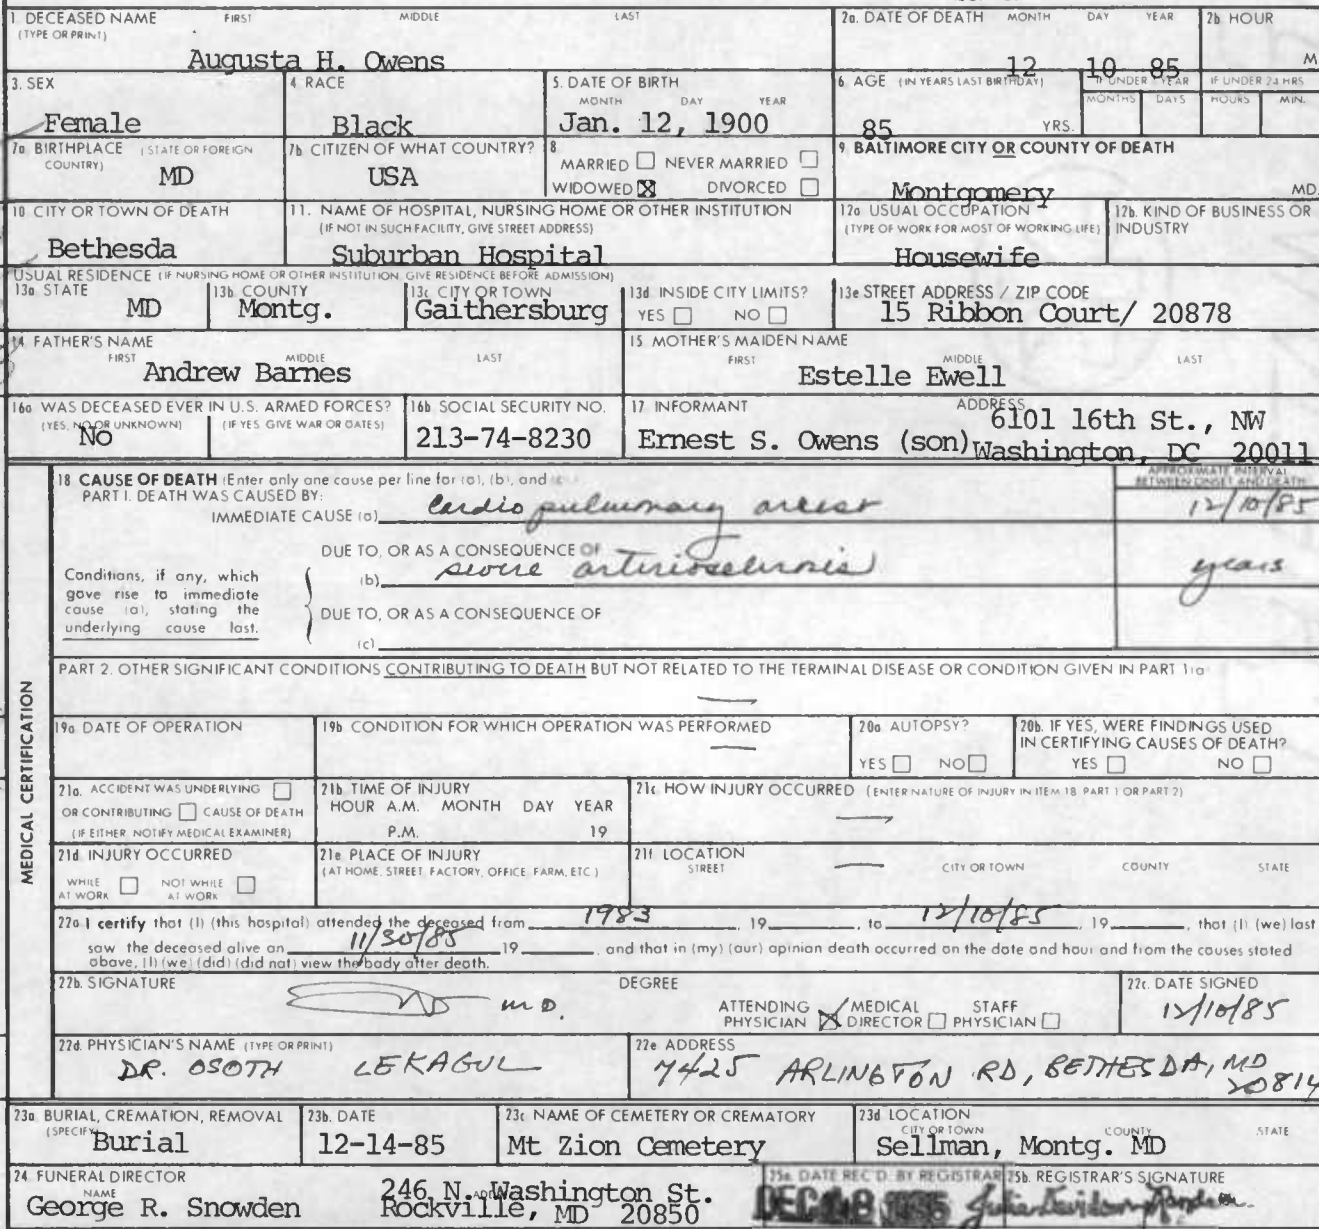 1. DECEASED NAME FIRST MIDDLE LAST
(TYPE OR PRINT)
Augusta H. Owens
2a. DATE OF DEATH MONTH DAY YEAR
12 10 85
2b HOUR
M
3. SEX
Female
4 RACE
Black
5. DATE OF BIRTH
MONTH DAY YEAR
Jan. 12, 1900
6. AGE (IN YEARS LAST BIRTHDAY)
85 YRS.
IF UNDER 1 YEAR
MONTHS DAYS
IF UNDER 24 HRS
HOURS MIN.
7a BIRTHPLACE (STATE OR FOREIGN
COUNTRY)
MD
7b CITIZEN OF WHAT COUNTRY?
USA
8
MARRIED ☐ NEVER MARRIED ☐
WIDOWED ☒ DIVORCED ☐
9 BALTIMORE CITY OR COUNTY OF DEATH
Montgomery MD.
10 CITY OR TOWN OF DEATH
Bethesda
11. NAME OF HOSPITAL, NURSING HOME OR OTHER INSTITUTION
(IF NOT IN SUCH FACILITY, GIVE STREET ADDRESS)
Suburban Hospital
12a USUAL OCCUPATION
(TYPE OF WORK FOR MOST OF WORKING LIFE)
Housewife
12b. KIND OF BUSINESS OR
INDUSTRY
USUAL RESIDENCE (IF NURSING HOME OR OTHER INSTITUTION GIVE RESIDENCE BEFORE ADMISSION)
13a STATE
MD
13b COUNTY
Montg.
13c CITY OR TOWN
Gaithersburg
13d INSIDE CITY LIMITS?
YES ☐ NO ☐
13e STREET ADDRESS / ZIP CODE
15 Ribbon Court/ 20878
14 FATHER'S NAME
FIRST MIDDLE LAST
Andrew Barnes
15 MOTHER'S MAIDEN NAME
FIRST MIDDLE LAST
Estelle Ewell
16a WAS DECEASED EVER IN U.S. ARMED FORCES?
(YES, NO OR UNKNOWN) (IF YES GIVE WAR OR DATES)
No
16b SOCIAL SECURITY NO.
213-74-8230
17 INFORMANT ADDRESS
Ernest S. Owens (son)
6101 16th St., NW
Washington, DC 20011
MEDICAL CERTIFICATION
18 CAUSE OF DEATH (Enter only one cause per line for (a), (b), and (c)
PART I. DEATH WAS CAUSED BY:
APPROXIMATE INTERVAL
BETWEEN ONSET AND DEATH
IMMEDIATE CAUSE (a) Cardio pulmonary arrest 12/10/85
DUE TO, OR AS A CONSEQUENCE OF
(b) severe arteriosclerosis years
Conditions, if any, which
gave rise to immediate
cause (a), stating the
underlying cause last.
DUE TO, OR AS A CONSEQUENCE OF
(c)
PART 2. OTHER SIGNIFICANT CONDITIONS CONTRIBUTING TO DEATH BUT NOT RELATED TO THE TERMINAL DISEASE OR CONDITION GIVEN IN PART 1(a)
—
19a DATE OF OPERATION
19b CONDITION FOR WHICH OPERATION WAS PERFORMED
—
20a AUTOPSY?
YES ☐ NO ☐
20b. IF YES, WERE FINDINGS USED
IN CERTIFYING CAUSES OF DEATH?
YES ☐ NO ☐
21a. ACCIDENT WAS UNDERLYING ☐
OR CONTRIBUTING ☐ CAUSE OF DEATH
(IF EITHER NOTIFY MEDICAL EXAMINER)
21b TIME OF INJURY
HOUR A.M. MONTH DAY YEAR
P.M. 19
21c HOW INJURY OCCURRED (ENTER NATURE OF INJURY IN ITEM 18 PART 1 OR PART 2)
—
21d INJURY OCCURRED
WHILE ☐ NOT WHILE ☐
AT WORK AT WORK
21e PLACE OF INJURY
(AT HOME, STREET, FACTORY, OFFICE, FARM, ETC.)
21f LOCATION
STREET CITY OR TOWN COUNTY STATE
—
22a I certify that (I) (this hospital) attended the deceased from 1983 19 to 12/10/85, 19 , that (I) (we) last
saw the deceased alive on 11/30/85 19 , and that in (my) (our) opinion death occurred on the date and hour and from the causes stated
above, (I) (we) (did) (did not) view the body after death.
22b. SIGNATURE DEGREE
M.D.
ATTENDING PHYSICIAN ☒ MEDICAL DIRECTOR ☐ STAFF PHYSICIAN ☐
22c. DATE SIGNED
12/10/85
22d. PHYSICIAN'S NAME (TYPE OR PRINT)
DR. OSOTH LEKAGUL
22e ADDRESS
7425 ARLINGTON RD, BETHESDA, MD
20814
23a BURIAL, CREMATION, REMOVAL
(SPECIFY)
Burial
23b. DATE
12-14-85
23c NAME OF CEMETERY OR CREMATORY
Mt Zion Cemetery
23d LOCATION
CITY OR TOWN COUNTY STATE
Sellman, Montg. MD
24 FUNERAL DIRECTOR
NAME ADDRESS
George R. Snowden
246 N. Washington St.
Rockville, MD 20850
25a. DATE REC'D. BY REGISTRAR
DEC 18 1985
25b. REGISTRAR'S SIGNATURE